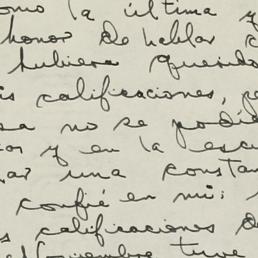 como la última y
honor de hablar
hubiera querido
calificaciones,
sa no se podí
y en la escu
ar una constan
confié en mi:
s calificaciones de
Noviembre tuve